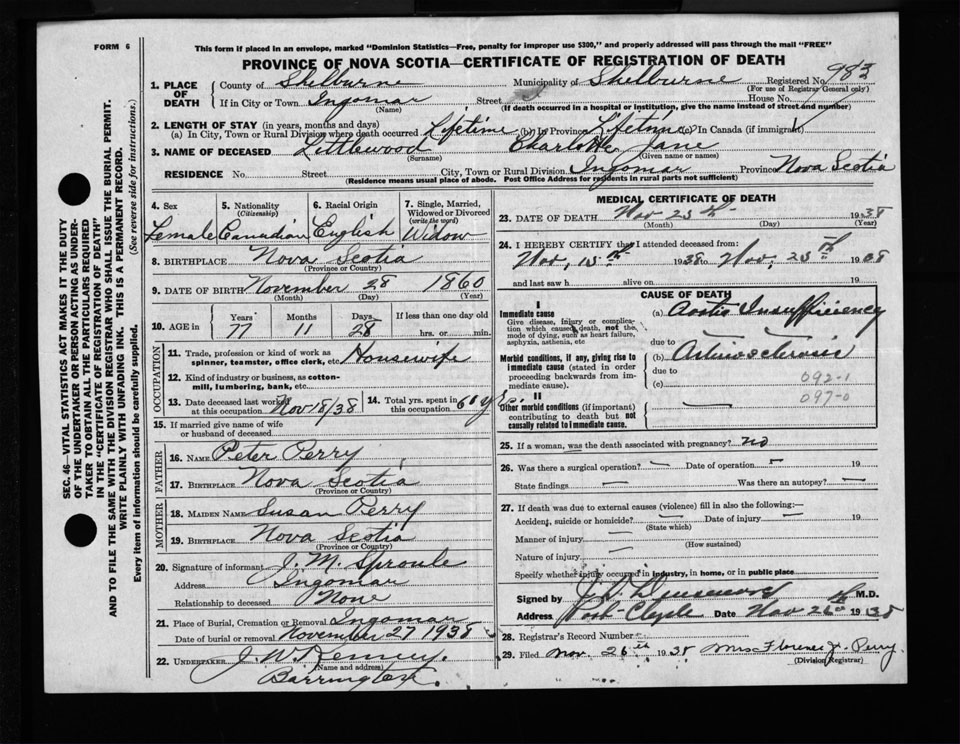 FORM 6
This form if placed in an envelope, marked "Dominion Statistics—Free, penalty for improper use $300," and properly addressed will pass through the mail "FREE"
PROVINCE OF NOVA SCOTIA—CERTIFICATE OF REGISTRATION OF DEATH
1. PLACE OF DEATH County of Shelburne Municipality of Shelburne Registered No. 983
(For use of Registrar General only)
If in City or Town Ingomar Street House No.
(Name) (If death occurred in a hospital or institution, give the name instead of street and number)
2. LENGTH OF STAY (in years, months and days)
(a) In City, Town or Rural Division where death occurred Lifetime (b) In Province Lifetime (c) In Canada (if immigrant)
3. NAME OF DECEASED Littlewood Charlotte Jane
(Surname) (Given name or names)
RESIDENCE No. Street City, Town or Rural Division Ingomar Province Nova Scotia
(Residence means usual place of abode. Post Office Address for residents in rural parts not sufficient)
4. Sex 5. Nationality (Citizenship) 6. Racial Origin 7. Single, Married, Widowed or Divorced (write the word)
Female Canadian English Widow
8. BIRTHPLACE Nova Scotia
(Province or Country)
9. DATE OF BIRTH November 28 1860
(Month) (Day) (Year)
10. AGE in Years Months Days If less than one day old
77 11 28 hrs. or min.
OCCUPATION
11. Trade, profession or kind of work as spinner, teamster, office clerk, etc. Housewife
12. Kind of industry or business, as cotton-mill, lumbering, bank, etc.
13. Date deceased last worked at this occupation Nov 18/38 14. Total yrs. spent in this occupation 60 yrs.
15. If married give name of wife or husband of deceased
FATHER
16. NAME Peter Perry
17. BIRTHPLACE Nova Scotia
(Province or Country)
MOTHER
18. MAIDEN NAME Susan Perry
19. BIRTHPLACE Nova Scotia
(Province or Country)
20. Signature of informant J. M. Sproule
Address Ingomar
Relationship to deceased None
21. Place of Burial, Cremation or Removal Ingomar
Date of burial or removal November 27 1938
22. UNDERTAKER J. W. Kenney.
(Name and address)
Barrington
MEDICAL CERTIFICATE OF DEATH
23. DATE OF DEATH Nov 25th 1938
(Month) (Day) (Year)
24. I HEREBY CERTIFY that I attended deceased from:
Nov, 15th 1938 to Nov, 25th 1938
and last saw h alive on 19
CAUSE OF DEATH
I
Immediate cause
Give disease, injury or complication which caused death, not the mode of dying, such as heart failure, asphyxia, asthenia, etc
(a) Aortic Insufficiency
due to
Morbid conditions, if any, giving rise to immediate cause (stated in order proceeding backwards from immediate cause).
(b) Arteriosclerosis
due to
(c)
092-1
097-0
II
Other morbid conditions (if important) contributing to death but not causally related to Immediate cause.
25. If a woman, was the death associated with pregnancy? no
26. Was there a surgical operation? — Date of operation — 19
State findings — Was there an autopsy? —
27. If death was due to external causes (violence) fill in also the following:—
Accident, suicide or homicide? — Date of injury — 19
(State which)
Manner of injury —
(How sustained)
Nature of injury —
Specify whether injury occured in industry, in home, or in public place
Signed by M.D.
Address Port Clyde Date Nov 26th 1938
28. Registrar's Record Number
29. Filed Nov. 26th 1938 Mrs Florence J. Perry
(Division Registrar)
SEC. 46—VITAL STATISTICS ACT MAKES IT THE DUTY
OF THE UNDERTAKER OR PERSON ACTING AS UNDER-
TAKER TO OBTAIN ALL THE PARTICULARS REQUIRED
IN THE "CERTIFICATE OF REGISTRATION OF DEATH"
AND TO FILE THE SAME WITH THE DIVISION REGISTRAR WHO SHALL ISSUE THE BURIAL PERMIT.
WRITE PLAINLY WITH UNFADING INK. THIS IS A PERMANENT RECORD.
Every item of information should be carefully supplied. (See reverse side for instructions).